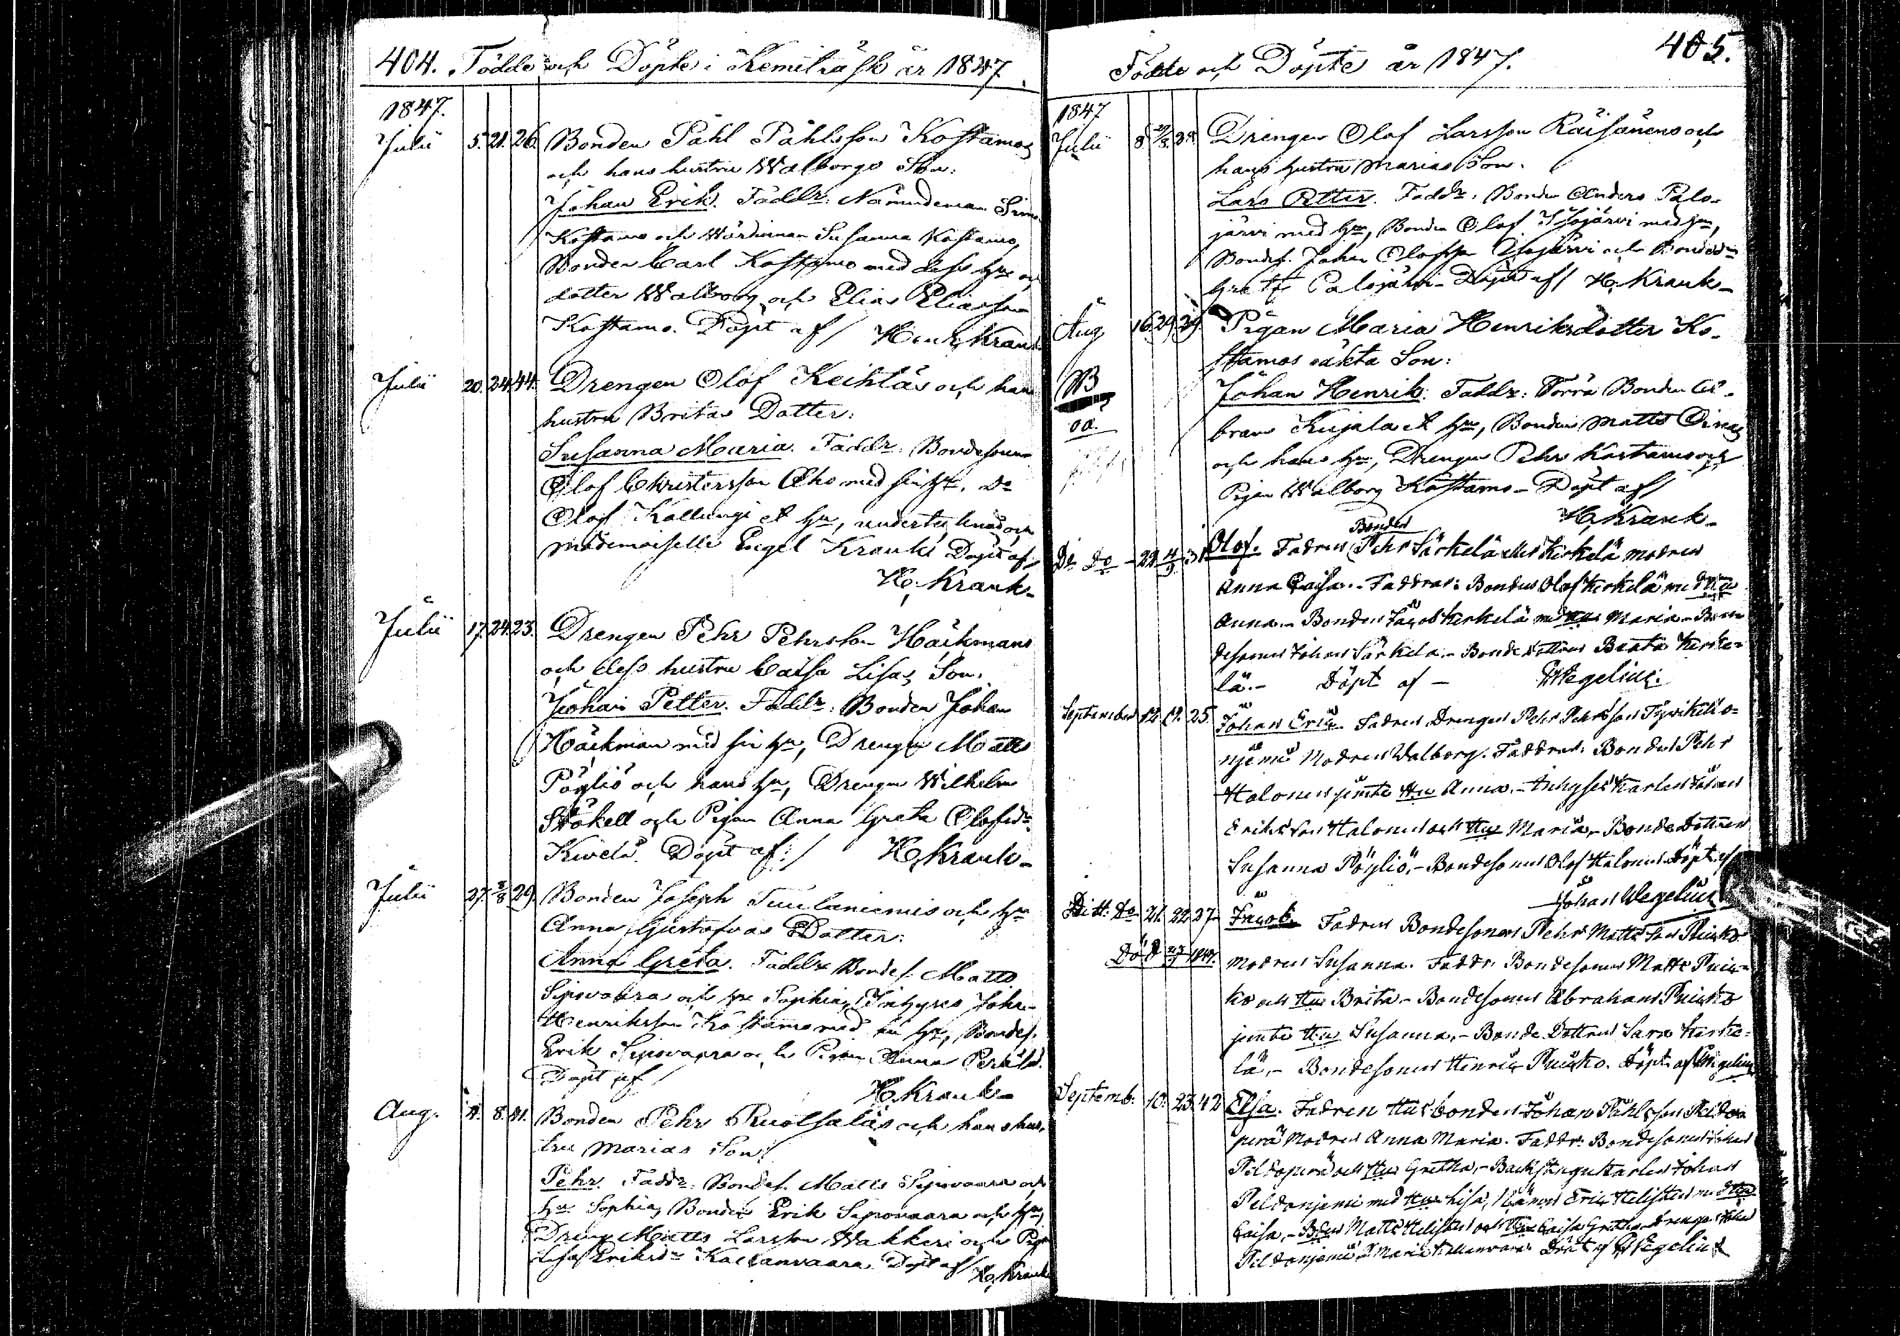 404. Födde och Döpte i Kemiträsk år 1847.
1847.
Julii 5. 21. 26. Bonden Påhl Påhlsson Kostamos
och hans hustru Walborgs Son:
Johan Erik. Faddr: Nämndeman Simo
Kostamo och Wärdinnan Susanna Kostamo,
Bonden Carl Kostamo med dess hu och
dotter Walborg och Elias Eliasson
Kostamo. Döpt af / Henr. Krank
Julii 20. 24. 44. Drengen Olof Keihläs och hans
hustru Britas Dotter:
Susanna Maria. Faddr: Bondesonen
Olof Christersson Aho med sin hu, Do
Olof Kallungi et hu, undertecknad och
Mademoiselle Engel Krank. Döpt af /
H. Krank
Julii 17. 24. 23. Drengen Pehr Pehrsson Häckmans
och dess hustru Caisa Lisas Son:
Johan Petter. Faddr: Bonden Johan
Häckman med sin hu, Drengen Matts
Pöyliö och hans hu, Drengen Wilhelm
Stökell och Pigan Anna Greta Olofsdr
Kivelä. Döpt af: / H. Krank
Julii 27. 2/8 29. Bonden Joseph Tuulaniemis och hu
Anna Gustafvas Dotter:
Anna Greta. Faddr Bondes. Matts
Sipovaara och hu Sophia, Inhyses Johan
Henriksson Kostamo med sin hu, Bondes.
Erik Sipovaara och Pigan Anna Perälä.
Döpt af / H. Krank
Aug. 4. 8. 41. Bonden Pehr Ruotsaläs och hans hus-
tru Marias Son:
Pehr. Faddr: Bondes. Matts Sipovaara och
hu Sophia, Bonden Erik Sipovaara och hu,
Dreng Matts Larsson Wakkeri och Pigan
Lisa Eriksdr Kallanvaara. Döpt af / H. Krank
Födde och Döpte år 1847. 405.
1847
Julii 8 Drengen Olof Larsson Räisänens och
hans hustru Marias Son.
Lars Petter. Faddr: Bonden Anders Palo-
järvi med hu, Bonden Olof Isojärvi med hu,
Bondes. Johan Olofsson Isojärvi och Bondedr
Greta Palojärvi. Döpt af / H. Krank
Aug 16. 29. 29. Pigan Maria Henriksdotter Ko-
stamos oäkta Son:
NB
oä.
Johan Henrik. Faddr: Förra Bonden Ab-
bram Kujala et hu, Bonden Matts Oinas
och hans hu, Drengen Pehr Kostamo och
Pigan Walborg Kostamo. Döpt af /
H. Krank
Do Do 22 4/9 31 Olof. Fadren Bonden Pehr Särkelä Modren
Anna Caisa. Faddrar: Bonden Olof Kerkelä med Hu
Anna. Bonden Jacob Kerkelä med Hu Maria. Bon-
desonen Johan Särkelä. Bondedottren Beata Kerke-
lä. Döpt af Wegelius.
September 12. 19. 25. Johan Eric. Fadren Drengen Pehr Pehrsson
Modren Walborg. Faddrar: Bonden Pehr
Halonen jemte Hu Anna. Inhyses Karlen Johan
Ericsson Halonen och Hu Maria. Bondedottren
Susanna Pöyliö. Bondesonen Olof Halonen. Döpt af
Johan Wegelius
Ditt. Do 21. 22. 27. Jacob. Fadren Bondesonen Pehr Mattsson Puisko
Död 27/9 1847. Modren Susanna. Faddr: Bondesonen Matts Puis-
ko och Hu Brita. Bondesonen Abraham Puisko
jemte Hu Susanna. Bonde Dottren Sara Kerke-
lä. Bondesonen Henric Puisko. Döpt af Wegelius
Septemb. 10. 23. 42. Elsa. Fadren Husbonden Johan Påhlsson Peldo-
perä Modren Anna Maria. Faddr: Bondesonen Johan
Peldoperä och Hu Gretha. Backstugukarlen Johan
Peldoniemi med Hu Lisa, Eric Hu
Caisa. Matts och Hu Caisa Gretha Drengen Johan
Peldoniemi Maria Döpt af Wegelius